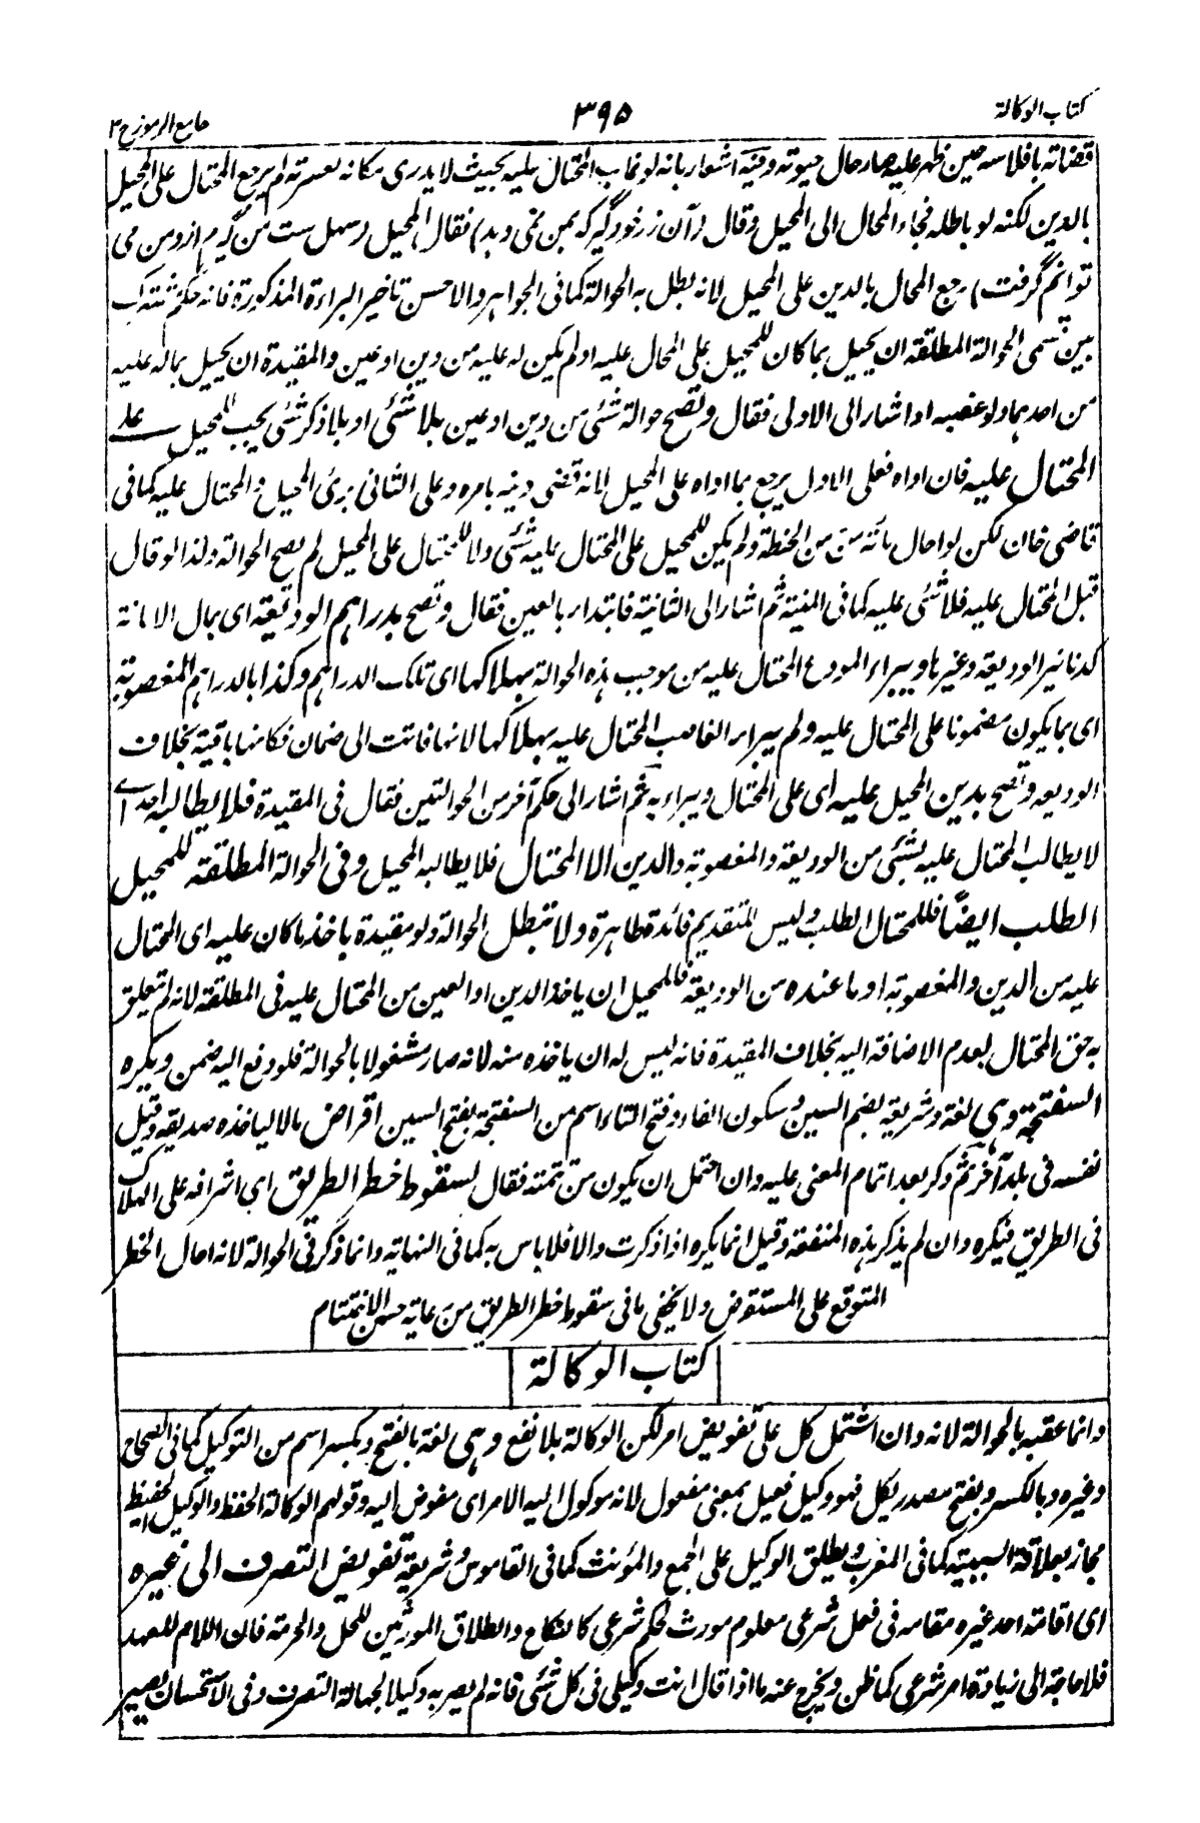 كتاب الوكالة
۳۹۵
جامع الرموز ج ۲
قضاته بافلاسه حين ظهر عليه صار حال حيوته وفيه اشعار بانه لو غاب المحتال عليه بحيث لا يدرى مكانه لعسرته لم يرجع المحتال على المحيل
بالدين لكنه لو باطله فجاء المحال الى المحيل وقال (آن زر خود گير كه بمن نمى دهد) فقال المحيل (سهل ست من گيرم ازو من مى
توانم گرفت) رجع المحال بالدين على المحيل لانه بطل به الحوالة كما فى الجواهر والاحسن تاخير البراءة المذكورة فانه حكم مشترك
بين قسمى الحوالة المطلقة ان يحيل بما كان للمحيل على المحال عليه او لم يكن له عليه من دين او عين والمقيدة ان يحيل بماله عليه
من احدهما ولو غصبه اذا اشار الى الاولى فقال وتصح حوالة شئى من دين او عين بلا شئى او بلا ذكر شئى يجب للمحيل على
المحتال عليه فان اداه فعلى الاول يرجع بما اداه على المحيل لانه قضى دينه بامره وعلى الثانى برئ المحيل والمحتال عليه كما فى
قاضى خان لكن لو احال بأنة من من الحنطة ولم يكن للمحيل على المحتال عليه شئى ولا للمحتال على المحيل لم يصح الحوالة ولذا لو قال
قبل المحتال عليه فلا شئى عليه كما فى المنية ثم اشار الى الثانية فابتدار بالعين فقال وتصح بدراهم الوديعة اى بمال الامانة
كدنانير الوديعة وغيرها ويبراء المودع المحتال عليه من موجب هذه الحوالة بهلاكها اى تلك الدراهم وكذا بالدراهم المغصوبة
اى بما يكون مضمونا على المحتال عليه ولم يبراء الغاصب المحتال عليه بهلاكها لانها فاتت الى ضمان فكانها باقية بخلاف
الوديعة وتصح بدين المحيل عليه اى على المحتال ويبراء به ثم اشار الى حكم آخر من الحوالتين فقال فى المقيدة فلا يطالبه احد اے
لا يطالب المحتال عليه بشئى من الوديعة والمغصوبة والدين الا المحتال فلا يطالبه المحيل وفى الحوالة المطلقة للمحيل
الطلب ايضًا فللمحتال الطلب وليس المتقديم فائدة ظاهرة ولا تبطل الحوالة ولو مقيدة باخذ ما كان عليه اى المحتال
عليه من الدين والمغصوبة او ما عنده من الوديعة فللمحيل ان ياخذ الدين او العين من المحتال عليه فى المطلقة لانه لم يتعلق
به حق المحتال لعدم الاضافة اليه بخلاف المقيدة فانه ليس له ان ياخذه منه لانه صار مشغولا بالحوالة فلو دفع اليه ضمن ويكره
السفتجة وهى لغة وشريعة بضم السين وسكون الفاء وفتح التاء اسم من السفتجة بفتح السين اقراض مالا لياخذه صديقه وقيل
نفسه فى بلد آخر ثم ذكر بعد اتمام المعنى عليه وان احتمل ان يكون من تتمته فقال لسقوط خطر الطريق اى اشرافه على الهلاك
فى الطريق فيكره وان لم يذكر هذه المنفعة وقيل انما يكره اذا ذكرت والا فلا باس به كما فى النهاية وانما ذكر فى الحوالة لانه احال الخطر
المتوقع على المستقرض ولا يخفى ما فى سقوط خطر الطريق من رعاية حسن الاختتام
كتاب الوكالة
وانما عقبه بالحوالة لانه وان اشتمل كل على تفويض امر لكن الوكالة بلا نفع وهى لغة بالفتح ويكسر اسم من التوكيل كما فى الصحاح
وغيره وبالكسر ويفتح مصدر يكل فهو وكيل فعيل بمعنى مفعول لانه موكول اليه الامر اى مفوض اليه وقولهم الوكالة الحفظ والوكيل الحفيظ
مجاز بعلاقة السببية كما فى المغرب ويطلق الوكيل على الجمع والمؤنث كما فى القاموس وشريعة تفويض التصرف الى غيره
اى اقامة احد غيره مقامه فى فعل شرعى معلوم مورث لحكم شرعى كالنكاح والطلاق المورثين للحل والحرمة فان اللام للعهد
فلا حاجة الى زيادة امر شرعى كما ظن ويخرج عنه ما اذا قال انت وكيلى فى كل شئى فانه لم يصر به وكيلا لجهالة التصرف وفى الاستحسان يصير